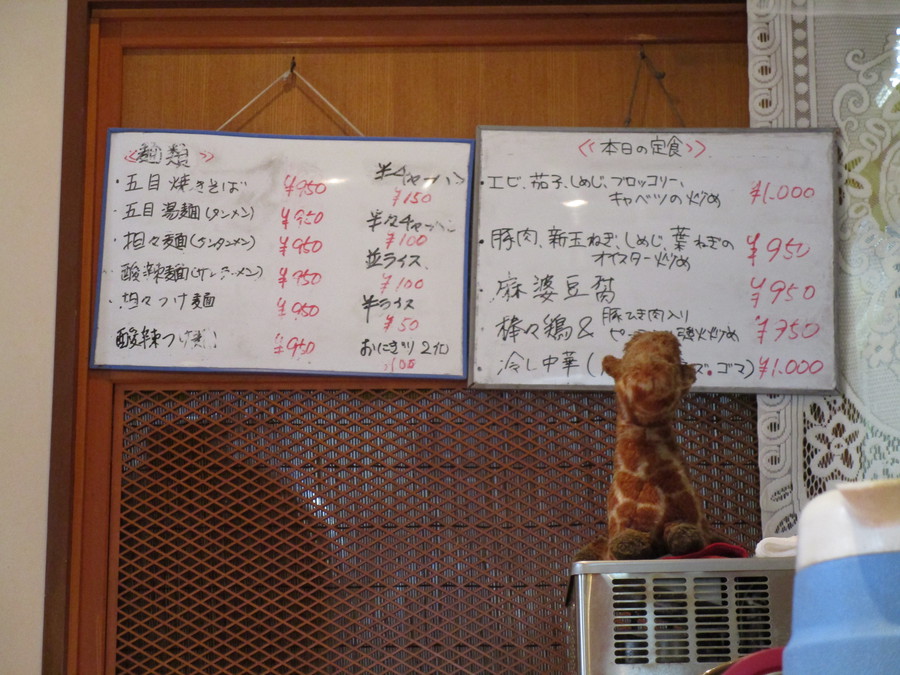 《麺類》
・五目焼きそば ¥950
・五目湯麺(タンメン) ¥950
・担々麺(タンタンメン) ¥950
酸辣麺(サンラーメン) ¥950
・担々つけ麺 ¥950
酸辣つけ麺 ¥950
半チャーハン
¥150
半々チャーハン
¥100
並ライス
¥100
半ライス
¥50
おにぎり2ケ
¥100
《本日の定食》
・エビ、茄子、しめじ、ブロッコリー、
キャベツの炒め ¥1.000
・豚肉、新玉ねぎ、しめじ、葉ねぎの
オイスター炒め ¥950
・麻婆豆腐 ¥950
・棒々鶏& 豚ひき肉入り
炒め ¥750
・冷し中華( ・ゴマ) ¥1.000